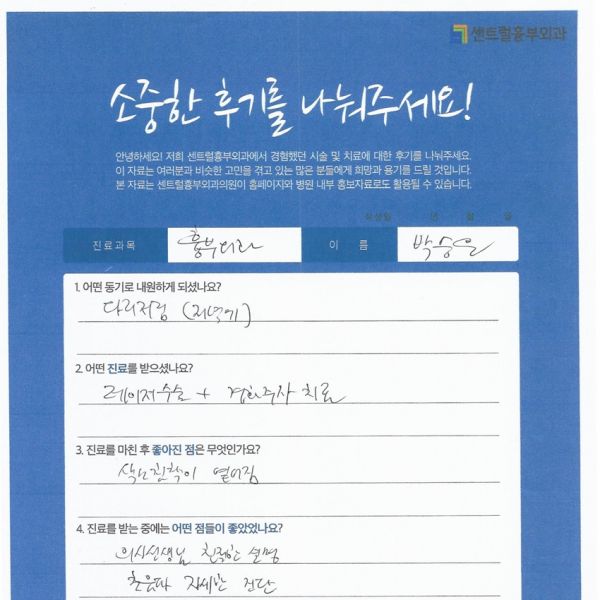 센트럴흉부외과
소중한 후기를 나눠주세요!
안녕하세요! 저희 센트럴흉부외과에서 경험했던 시술 및 치료에 대한 후기를 나눠주세요.
이 자료는 여러분과 비슷한 고민을 겪고 있는 많은 분들에게 희망과 용기를 드릴 것입니다.
본 자료는 센트럴흉부외과의원이 홈페이지와 병원 내부 홍보자료로도 활용될 수 있습니다.
작성일 년 월 일
진료과목 흉부외과 이 름 박승운
1. 어떤 동기로 내원하게 되셨나요?
다리저림 (저녁에)
2. 어떤 진료를 받으셨나요?
레이저수술 + 경화주사 치료
3. 진료를 마친 후 좋아진 점은 무엇인가요?
색소침착이 옅어짐
4. 진료를 받는 중에는 어떤 점들이 좋았었나요?
의사선생님 친절한 설명
초음파 자세한 진단